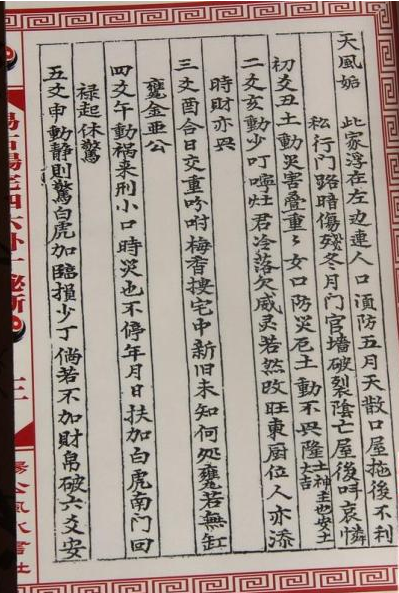 天風姤 此家浮在左边連人口須防五月天散口屋拖後不利
私行門路暗傷殘冬月門官墙破裂陰亡屋後哀憐
初爻丑土動災害疊重々女口防災厄土動不畏隆土神主也安土大吉
二爻亥動少叮嚀灶君冷落欠威灵若然改旺東厨位人亦添
時財亦興
三爻酉合日交重吩咐梅香搜宅中新旧未知何処甕若無缸
甕金亜公
四爻午動禍来刑小口時災也不停年月日扶加白虎南門回
禄起休驚
五爻申動静則驚白虎加臨損少丁倘若不加財帛破六爻安
公風水書社